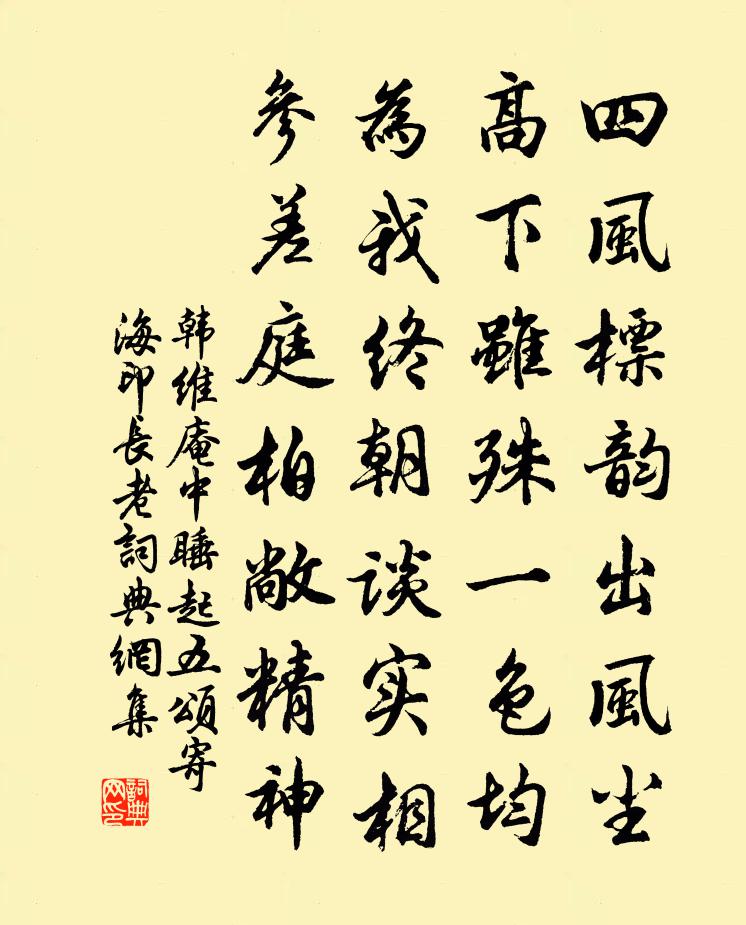 四風標韵出風尘
高下雖殊一色均
為我终朝談实相
參差庭柏敞精神
韩維庵中睡起五頌寄
海印長老詞典網集
詞典网印